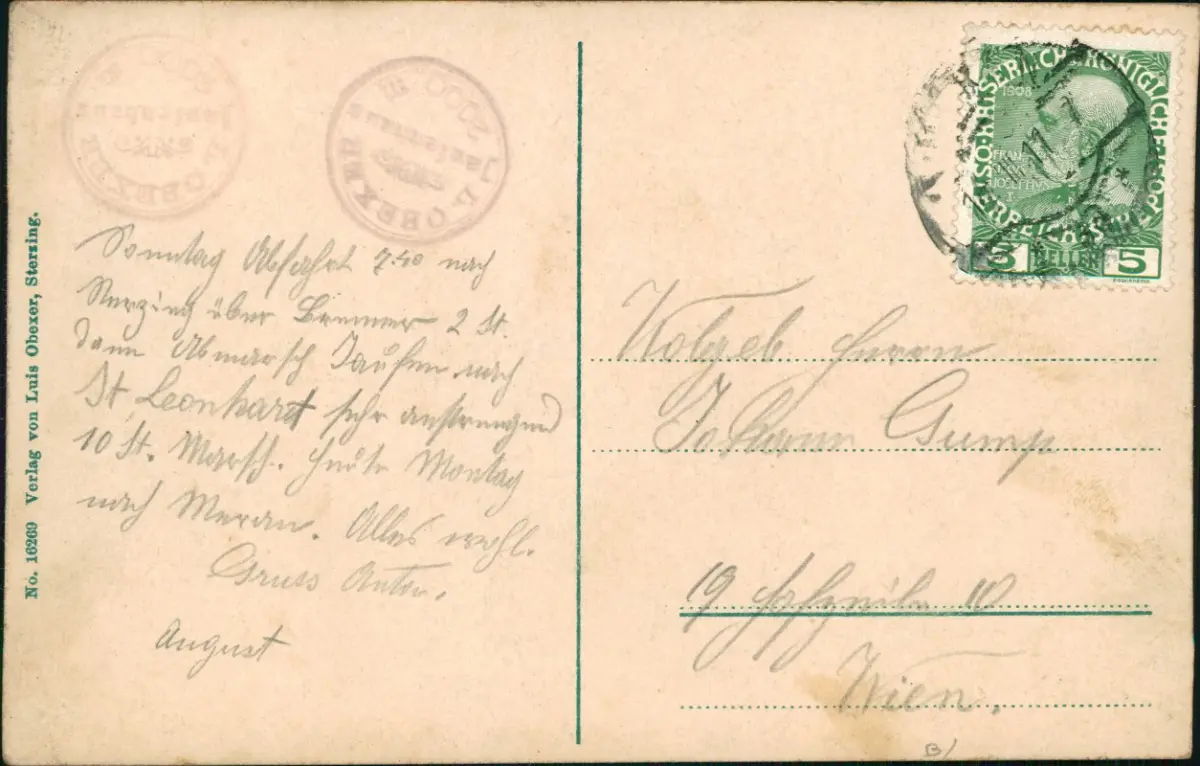 No. 16269 Verlag von Luis Obexer, Sterzing.
2000 m
L. OBEXER
Sonntag Abfahrt 7.40 nach
Sterzing über Brenner 2 St.
dann Abmarsch Jaufen nach
St. Leonhart sehr anstrengend
10 St. Marsch. Heute Montag
nach Meran. Alles wohl.
Gruss Anton.
August
KAISERLICHKÖNIGLICHE
ÖSTERREICHISCHE POST
1908
FRAN
IOSEPHVS
I
5 HELLER 5
11
Herrn
Johann Gump
19 10
Wien.
B/